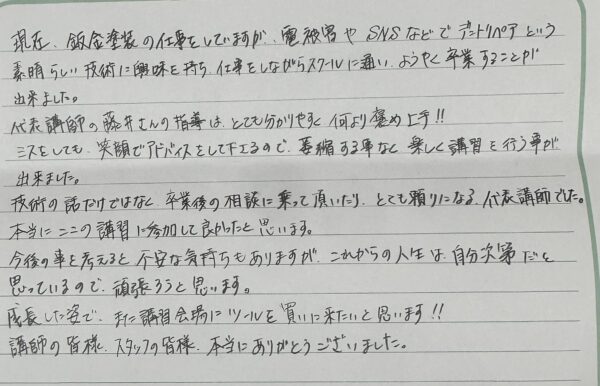 現在、鈑金塗装の仕事をしていますが、雹被害やSNSなどでデントリペアという
素晴らしい技術に興味を持ち、仕事をしながらスクールに通い、ようやく卒業することが
出来ました。
代表講師の藤井さんの指導は、とても分かりやすく何より褒め上手!!
ミスをしても、笑顔でアドバイスをして下さるので、萎縮する事なく楽しく講習を行う事が
出来ました。
技術の話だけではなく、卒業後の相談に乗って頂いたり、とても頼りになる、代表講師でした。
本当にここの講習に参加して良かったと思います。
今後の事を考えると不安な気持ちもありますが、これからの人生は、自分次第だと
思っているので、頑張ろうと思います。
成長した姿で、また講習会場にツールを買いに来たいと思います!!
講師の皆様、スタッフの皆様、本当にありがとうございました。